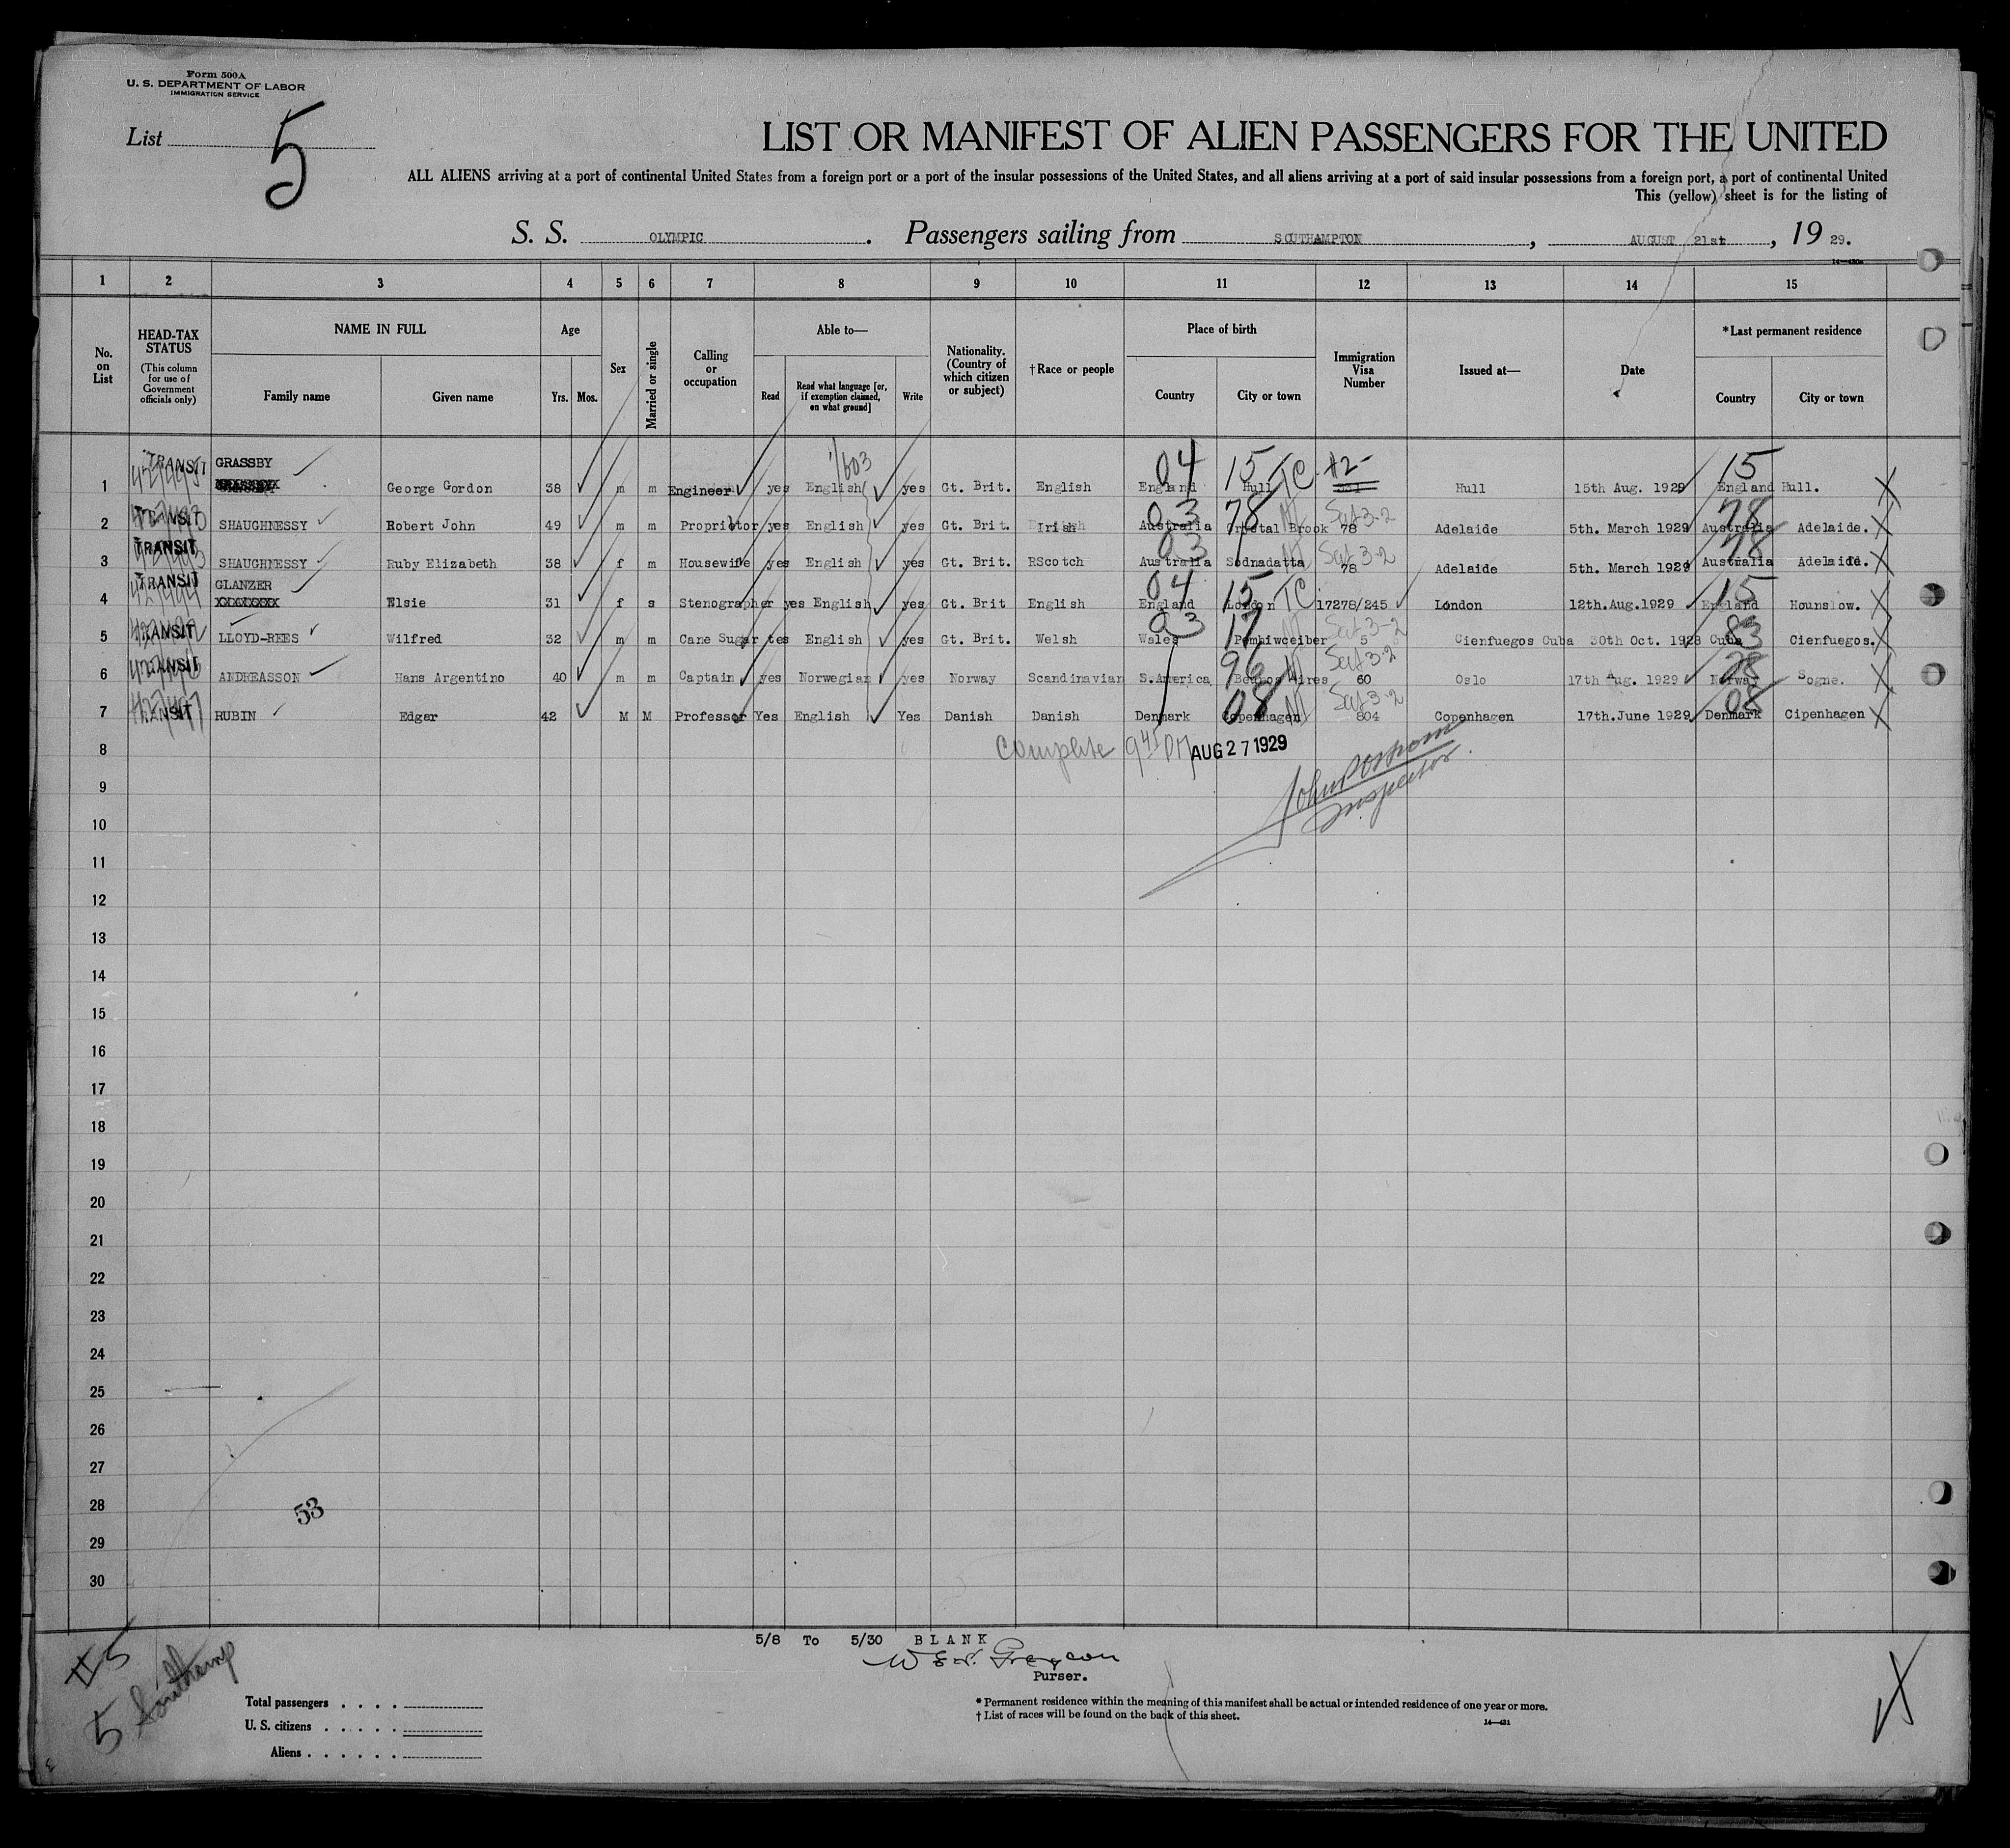 Form 500A
U. S. DEPARTMENT OF LABOR
IMMIGRATION SERVICE
List 5
LIST OR MANIFEST OF ALIEN PASSENGERS FOR THE UNITED
ALL ALIENS arriving at a port of continental United States from a foreign port or a port of the insular possessions of the United States, and all aliens arriving at a port of said insular possessions from a foreign port, a port of continental United
This (yellow) sheet is for the listing of
S. S. OLYMPIC. Passengers sailing from SOUTHAMPTON, AUGUST 21st, 19 29.
1 2 3 4 5 6 7 8 9 10 11 12 13 14 15
No. on List
HEAD-TAX STATUS (This column for use of Government officials only)
NAME IN FULL Family name Given name
Age Yrs. Mos.
Sex
Married or single
Calling or occupation
Able to— Read Read what language [or, if exemption claimed, on what ground] Write
Nationality. (Country of which citizen or subject)
†Race or people
Place of birth Country City or town
Immigration Visa Number
Issued at—
Date
*Last permanent residence Country City or town
1603 04 15 TC #2- 15
TRANSIT GRASSBY
1 George Gordon 38 m m Engineer yes English yes Gt. Brit. English England Hull Hull 15th Aug. 1929 England Hull.
03 78 Sect 3-2 78
2 TRANSIT SHAUGHNESSY Robert John 49 m m Proprietor yes English yes Gt. Brit. Irish Australia Crystal Brook 78 Adelaide 5th. March 1929 Australia Adelaide.
03 Sect 3-2 78
3 TRANSIT SHAUGHNESSY Ruby Elizabeth 38 f m Housewife yes English yes Gt. Brit. RScotch Australia Sodnadatta 78 Adelaide 5th. March 1929 Australia Adelaide.
TRANSIT GLANZER 04 15 TC 15
4 XXXXXXXX Elsie 31 f s Stenographer yes English yes Gt. Brit English England London 17278/245 London 12th.Aug.1929 England Hounslow.
03 17 Sect 3-2 83
5 TRANSIT LLOYD-REES Wilfred 32 m m Cane Sugar tes English yes Gt. Brit. Welsh Wales Penhiwceiber 5 Cienfuegos Cuba 30th Oct. 1928 Cuba Cienfuegos.
96 Sect 3-2 28
6 TRANSIT ANDREASSON Hans Argentino 40 m m Captain yes Norwegian yes Norway Scandinavian S.America Beunos Aires 60 Oslo 17th Aug. 1929 Norway Sogne.
08 Sect 3-2 08
7 TRANSIT RUBIN Edgar 42 M M Professor Yes English Yes Danish Danish Denmark Copenhagen 804 Copenhagen 17th.June 1929 Denmark Cipenhagen
8 Complete 9 45 PM AUG 27 1929
9
Inspector
10
11
12
13
14
15
16
17
18
19
20
21
22
23
24
25
26
27
28 53
29
30
5/8 To 5/30 BLANK
Purser.
#5
5 Southamp
Total passengers
U. S. citizens
Aliens
* Permanent residence within the meaning of this manifest shall be actual or intended residence of one year or more.
† List of races will be found on the back of this sheet.
14—421